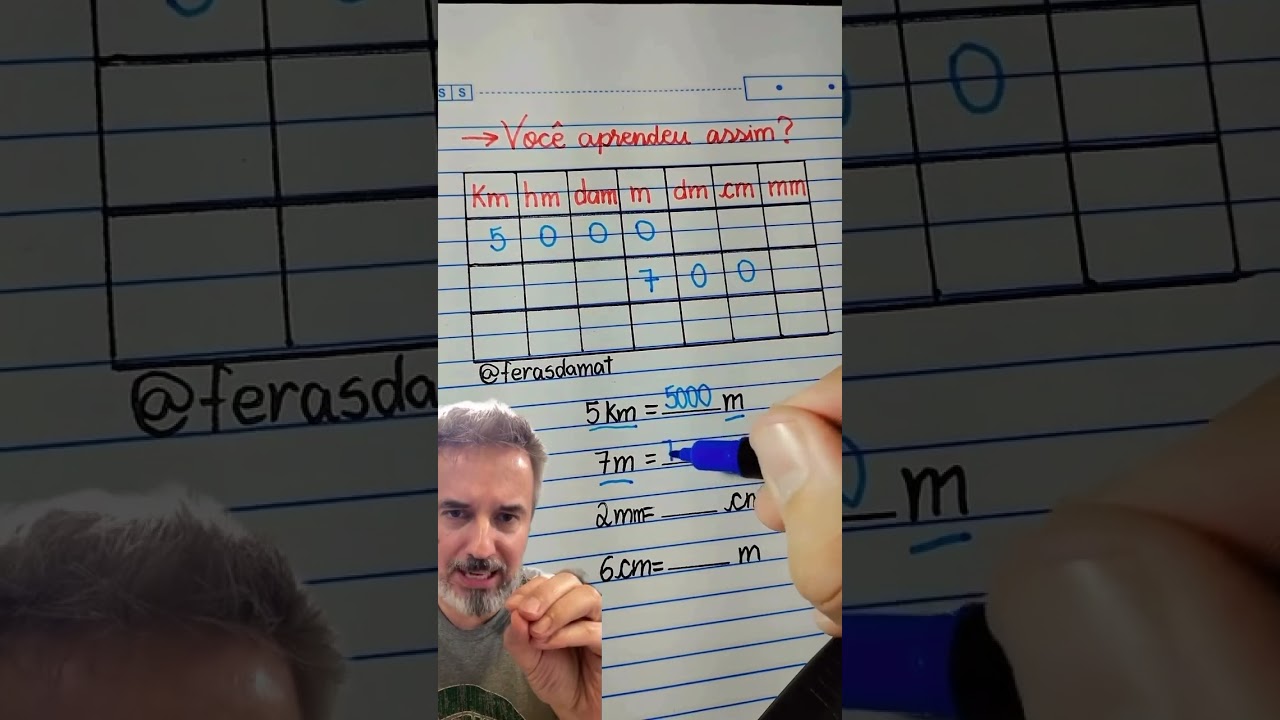 S S
→ Você aprendeu assim?
Km hm dam m dm cm mm
5 0 0 0
7 0 0
@ferasdamat
5 Km = 5000 m
7m = 7
2mm= ____ cm
6cm= ____ m
0
@ferasda
m